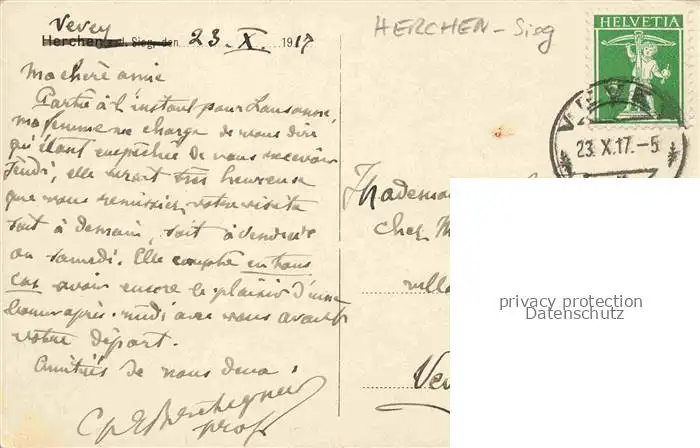 Vevey
Herchen a. d. Sieg, den 23. X. 1917
HERCHEN - Sieg
HELVETIA
VEVEY
23. X. 17. - 5
Ma chère amie
Partie à l'instant pour Lausanne,
ma femme me charge de vous dire
qu'étant empêchée de vous recevoir
jeudi, elle serait très heureuse
que vous remissiez votre visite
soit à demain, soit à vendredi
ou samedi. Elle compte en tous
cas avoir encore le plaisir d'une
bonne après-midi avec vous avant
votre départ.
Amitiés de nous deux :
prof.
Mademoi
chez M
villa
Vev
privacy protection
Datenschutz